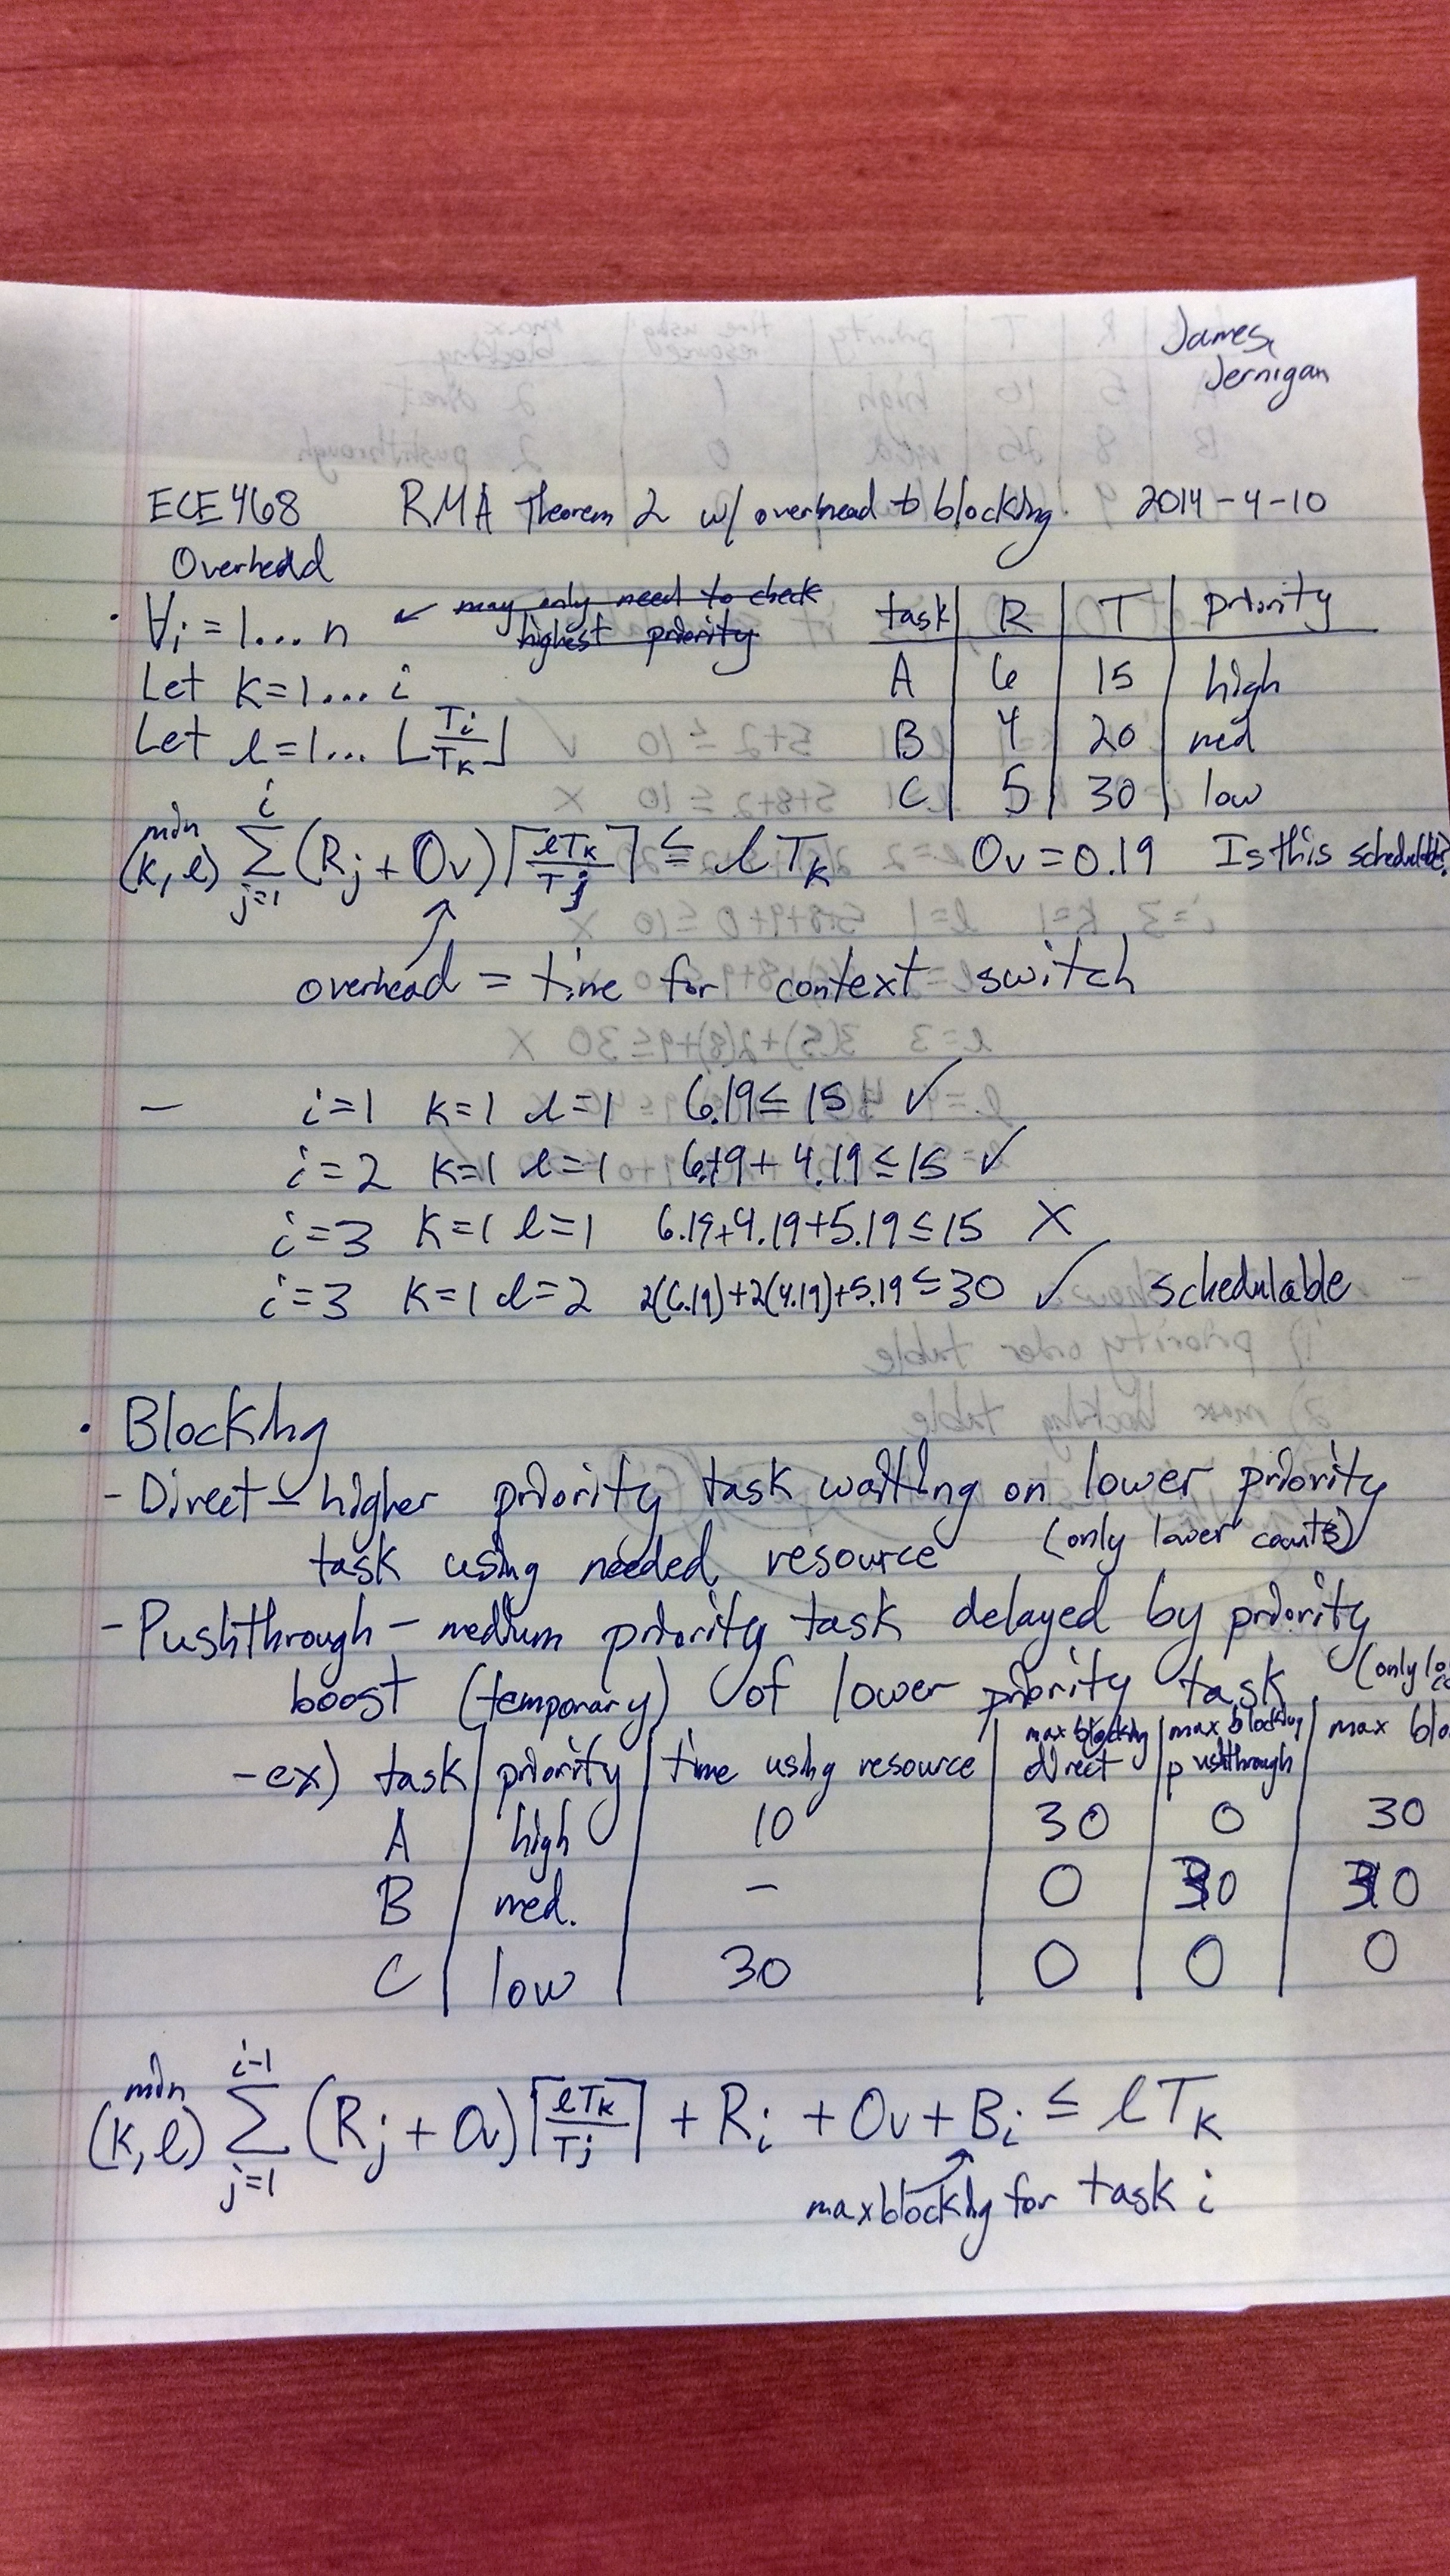 James
Jernigan
ECE 468 RMA Theorem 2 w/ overhead & blocking 2014-4-10
Overhead
· ∀i = 1... n ← may only need to check
highest priority
Let k=1... i
Let l=1... ⌊Ti/Tk⌋
task | R | T | priority
A | 6 | 15 | high
B | 4 | 20 | med
C | 5 | 30 | low
min (k,l) Σ_{j=1}^{i} (Rj + Ov) ⌈lTk/Tj⌉ ≤ lTk Ov = 0.19 Is this schedulable?
overhead = time for context switch
— i=1 k=1 l=1 6.19 ≤ 15 ✓
i=2 k=1 l=1 6.19 + 4.19 ≤ 15 ✓
i=3 k=1 l=1 6.19+4.19+5.19 ≤ 15 X
i=3 k=1 l=2 2(6.19)+2(4.19)+5.19 ≤ 30 ✓ schedulable
· Blocking
- Direct - higher priority task waiting on lower priority
task using needed resource (only lower counts)
- Pushthrough - medium priority task delayed by priority
boost (temporary) of lower priority task (only
-ex) task | priority | time using resource | max blocking direct | max blocking pushthrough | max blo
A | high | 10 | 30 | 0 | 30
B | med. | - | 0 | 30 | 30
C | low | 30 | 0 | 0 | 0
min (k,l) Σ_{j=1}^{i-1} (Rj + Ov) ⌈lTk/Tj⌉ + Ri + Ov + Bi ≤ lTk
max blocking for task i